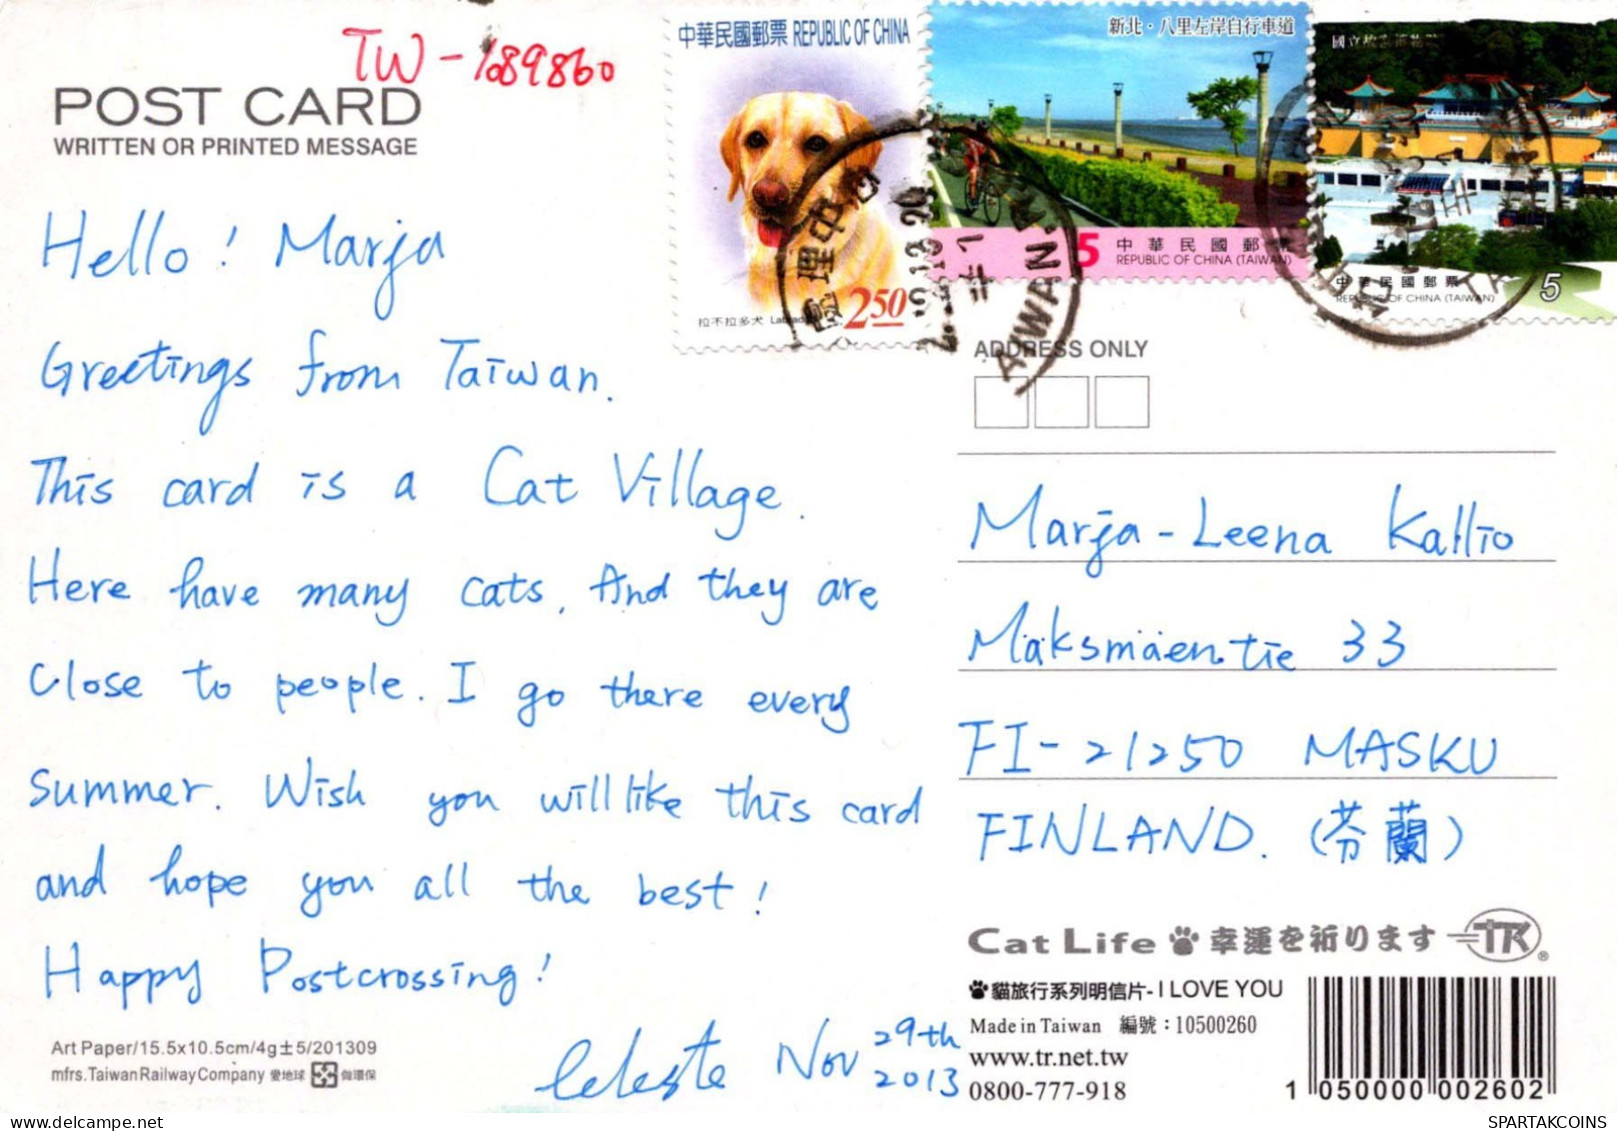 TW-1089860
POST CARD
WRITTEN OR PRINTED MESSAGE
中華民國郵票 REPUBLIC OF CHINA
拉不拉多犬
2.50
新北·八里左岸自行車道
5 中華民國郵票
REPUBLIC OF CHINA (TAIWAN)
國立故宮博物院
中華民國郵票
REPUBLIC OF CHINA (TAIWAN)
5
TAIWAN
Hello! Marja
Greetings from Taiwan.
This card is a Cat Village.
Here have many cats. And they are
close to people. I go there every
summer. Wish you will like this card
and hope you all the best!
Happy Postcrossing!
Celeste Nov 29th
2013
Art Paper/15.5x10.5cm/4g±5/201309
mfrs.Taiwan Railway Company 愛地球 做環保
ADDRESS ONLY
Marja-Leena Kallio
Mäksmäentie 33
FI-21250 MASKU
FINLAND. (芬蘭)
Cat Life 幸運を祈ります TR®
貓旅行系列明信片- I LOVE YOU
Made in Taiwan 編號：10500260
www.tr.net.tw
0800-777-918
1 050000 002602
SPARTAKCOINS